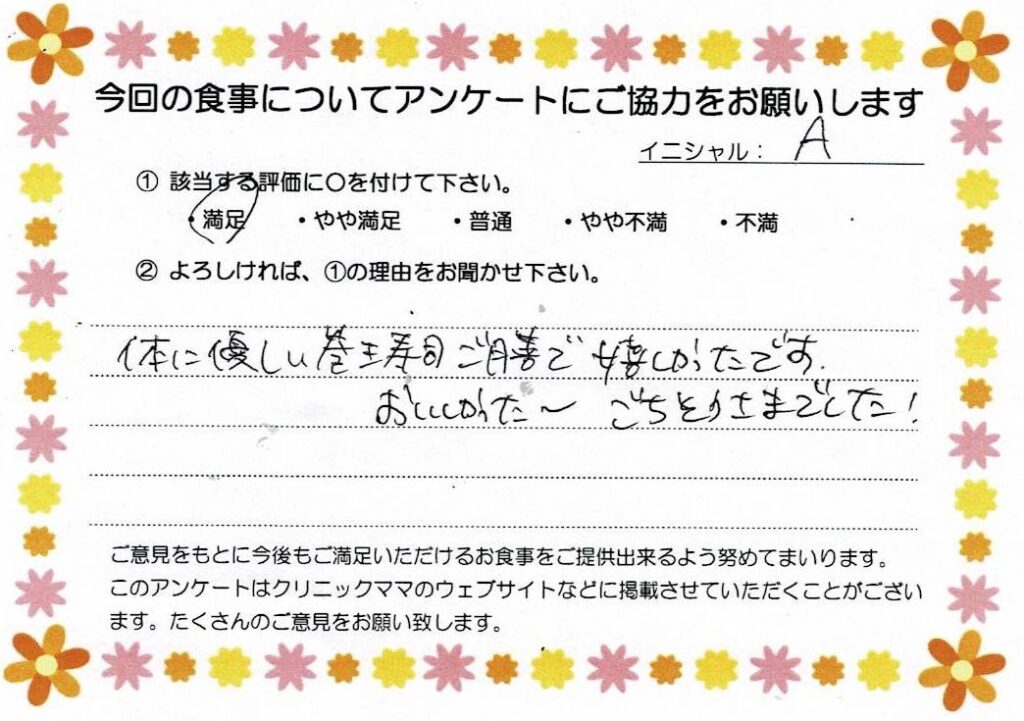 今回の食事についてアンケートにご協力をお願いします
イニシャル： A
① 該当する評価に〇を付けて下さい。
・満足 ・やや満足 ・普通 ・やや不満 ・不満
② よろしければ、①の理由をお聞かせ下さい。
体に優しい巻き寿司ご膳で嬉しかったです。
おいしかった〜 ごちそうさまでした！
ご意見をもとに今後もご満足いただけるお食事をご提供出来るよう努めてまいります。
このアンケートはクリニックママのウェブサイトなどに掲載させていただくことがござい
ます。たくさんのご意見をお願い致します。